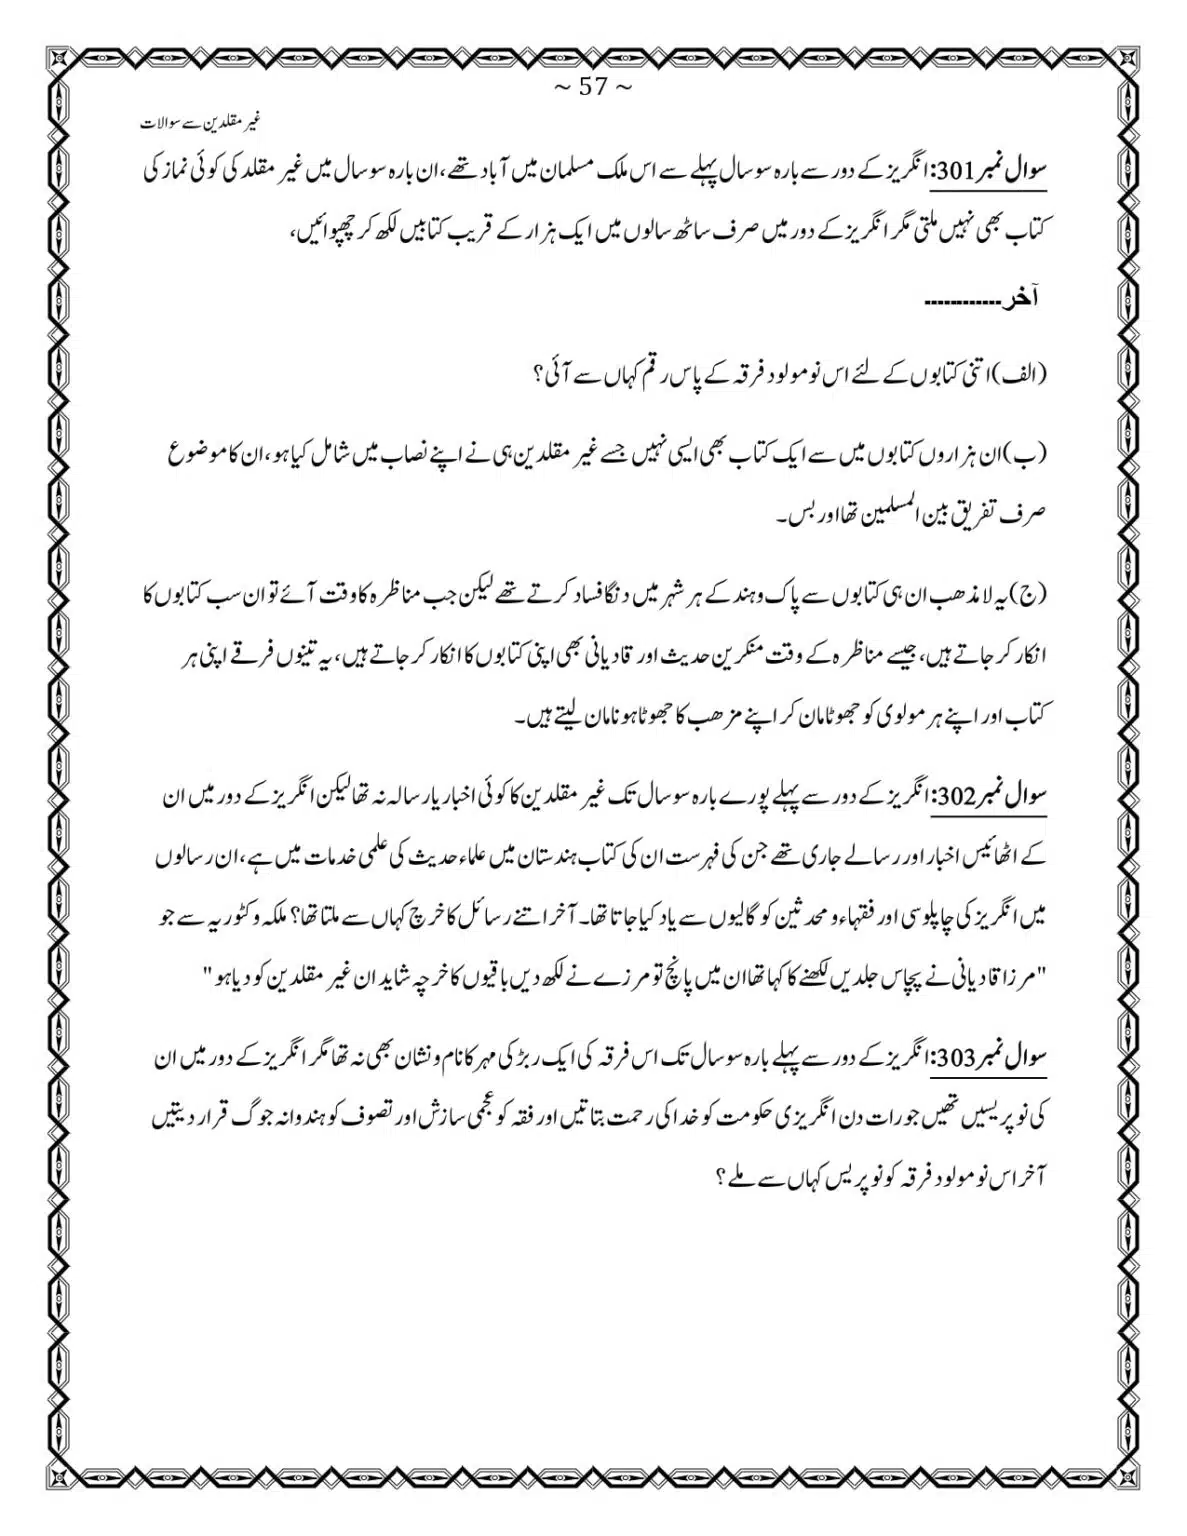 ~ 57 ~
غیر مقلدین سے سوالات
سوال نمبر301: انگریز کے دور سے بارہ سو سال پہلے سے اس ملک مسلمان میں آباد تھے، ان بارہ سو سال میں غیر مقلد کی کوئی نماز کی
کتاب بھی نہیں ملتی مگر انگریز کے دور میں صرف ساٹھ سالوں میں ایک ہزار کے قریب کتابیں لکھ کر چھپوائیں،
آخر------------
(الف) اتنی کتابوں کے لئے اس نومولود فرقہ کے پاس رقم کہاں سے آئی؟
(ب) ان ہزاروں کتابوں میں سے ایک کتاب بھی ایسی نہیں جسے غیر مقلدین ہی نے اپنے نصاب میں شامل کیا ہو، ان کا موضوع
صرف تفریق بین المسلمین تھا اور بس۔
(ج) یہ لا مذھب ان ہی کتابوں سے پاک و ہند کے ہر شہر میں دنگا فساد کرتے تھے لیکن جب مناظرہ کا وقت آئے تو ان سب کتابوں کا
انکار کر جاتے ہیں، جیسے مناظرہ کے وقت منکرین حدیث اور قادیانی بھی اپنی کتابوں کا انکار کر جاتے ہیں، یہ تینوں فرقے اپنی ہر
کتاب اور اپنے ہر مولوی کو جھوٹا مان کر اپنے مزھب کا جھوٹا ہونا مان لیتے ہیں۔
سوال نمبر302: انگریز کے دور سے پہلے پورے بارہ سو سال تک غیر مقلدین کا کوئی اخبار یا رسالہ نہ تھا لیکن انگریز کے دور میں ان
کے اٹھائیس اخبار اور رسالے جاری تھے جن کی فہرست ان کی کتاب ہندستان میں علماء حدیث کی علمی خدمات میں ہے، ان رسالوں
میں انگریز کی چاپلوسی اور فقہاء و محدثین کو گالیوں سے یاد کیا جاتا تھا۔ آخر اتنے رسائل کا خرچ کہاں سے ملتا تھا؟ ملکہ وکٹوریہ سے جو
"مرزا قادیانی نے پچاس جلدیں لکھنے کا کہا تھا ان میں پانچ تو مرزے نے لکھ دیں باقیوں کا خرچہ شاید ان غیر مقلدین کو دیا ہو"
سوال نمبر303: انگریز کے دور سے پہلے بارہ سو سال تک اس فرقہ کی ایک ربڑ کی مہر کا نام و نشان بھی نہ تھا مگر انگریز کے دور میں ان
کی نو پریسیں تھیں جو رات دن انگریزی حکومت کو خدا کی رحمت بتاتیں اور فقہ کو عجمی سازش اور تصوف کو ہندوانہ جوگ قرار دیتیں
آخر اس نومولود فرقہ کو نو پریس کہاں سے ملے؟